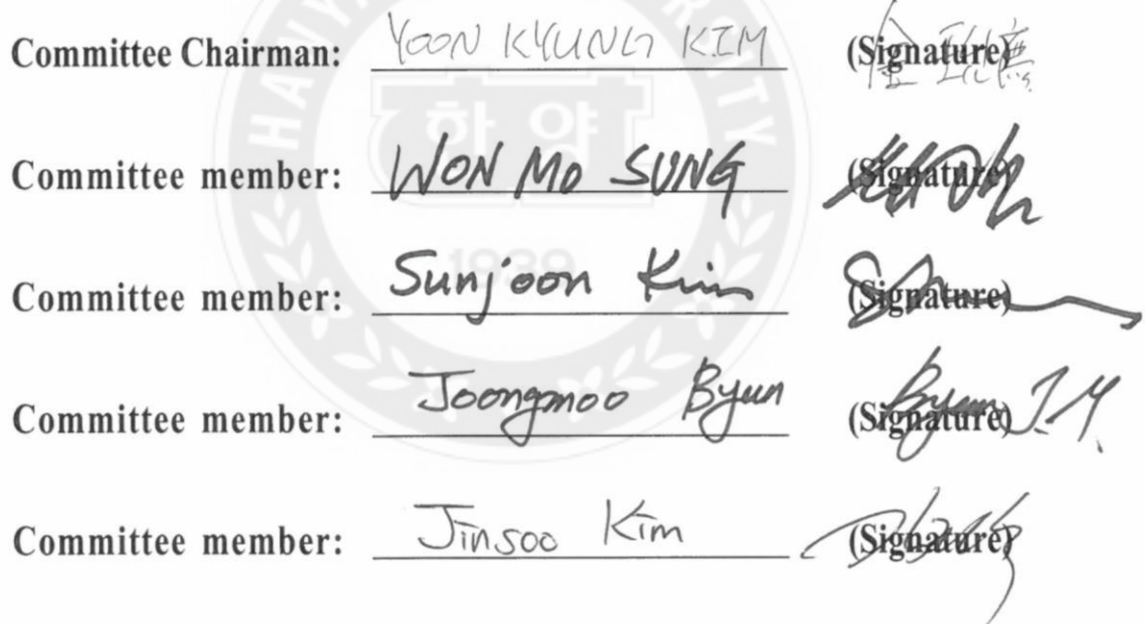 HANYANG UNIVERSITY
한양
1939
Committee Chairman: YOON KYUNG KIM (Signature)
Committee member: WON MO SUNG (Signature)
Committee member: Sunjoon Kim (Signature)
Committee member: Joongmoo Byun (Signature) Byun J.M.
Committee member: Jinsoo Kim (Signature)